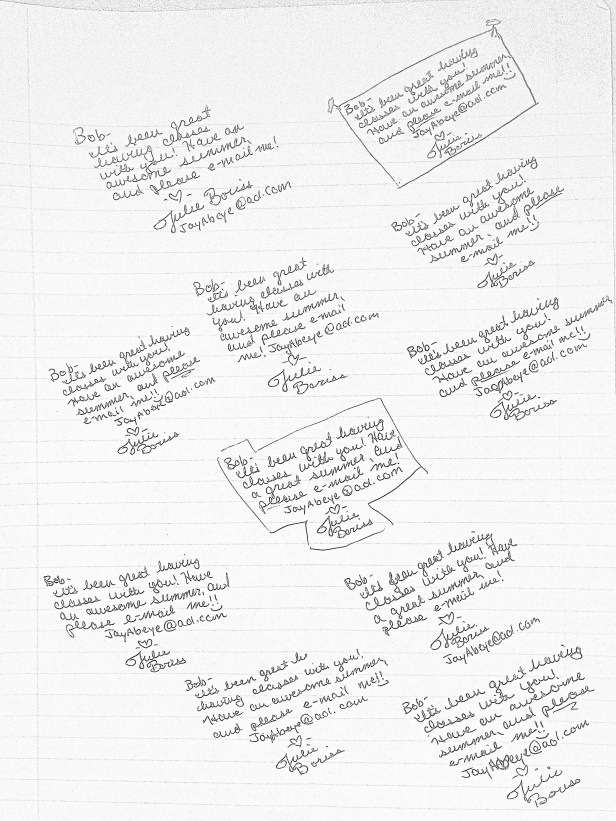 Bob-
It's been great
having classes
with you! Have an
awesome summer,
and please e-mail me!
Julie Boriss
JayAbeye@aol.com
Bob-
It's been great having
classes with you!
Have an awesome summer,
and please e-mail me!!
JayAbeye@aol.com
Julie
Boriss
Bob-
It's been great having
classes with you!
Have an awesome
summer, and please
e-mail me!!
Julie
Boriss
Bob-
It's been great
having classes with
you! Have an
awesome summer,
and please e-mail
me! JayAbeye@aol.com
Julie
Boriss
Bob-
It's been great having
classes with you!
Have an awesome
summer, and please
e-mail me!!
JayAbeye@aol.com
Julie
Boriss
Bob-
It's been great having
classes with you!
Have an awesome summer
and please e-mail me!!
JayAbeye@aol.com
Julie
Boriss
Bob-
It's been great having
classes with you! Have
a great summer, and
please e-mail me!
JayAbeye@aol.com
Julie
Boriss
Bob-
It's been great having
classes with you! Have
an awesome summer, and
please e-mail me!!
JayAbeye@aol.com
Julie
Boriss
Bob-
It's been great having
classes with you! Have
a great summer, and
please e-mail me!
Julie
Boriss
JayAbeye@aol.com
Bob-
It's been great h
having classes with you!
Have an awesome summer,
and please e-mail me!!
JayAbeye@aol.com
Julie
Boriss
Bob-
It's been great having
classes with you!
Have an awesome
summer, and please
e-mail me!!
JayAbeye@aol.com
Julie
Boriss